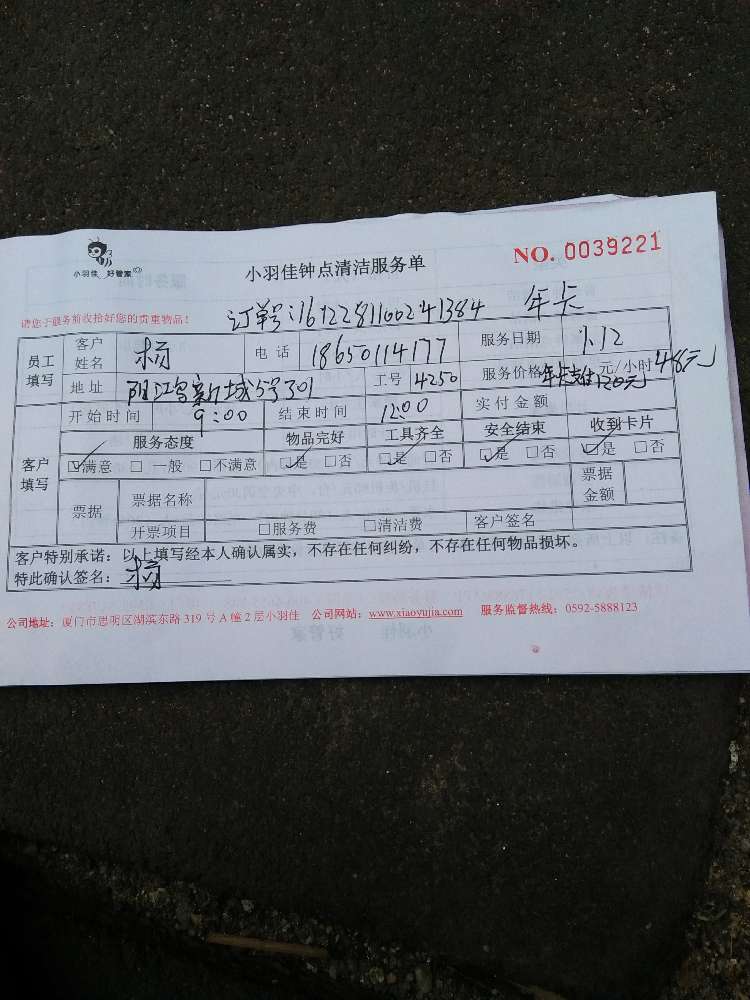 小羽佳 好管家
小羽佳钟点清洁服务单
NO. 0039221
请您于服务前收拾好您的贵重物品！
订单号:1612281100241384 年卡
员工填写 客户姓名 杨 电话 18650114177 服务日期 1.12
地址 阳江宫新城5号301 工号 4250 服务价格 年卡支付120元 元/小时 48元
客户填写 开始时间 9:00 结束时间 12:00 实付金额
服务态度 物品完好 工具齐全 安全结束 收到卡片
☑满意 □一般 □不满意 ☑是 □否 ☑是 □否 ☑是 □否 ☑是 □否
票据 票据名称 票据金额
开票项目 □服务费 □清洁费 客户签名
客户特别承诺：以上填写经本人确认属实，不存在任何纠纷，不存在任何物品损坏。
特此确认签名：杨
公司地址：厦门市思明区湖滨东路319号A幢2层小羽佳 公司网站：www.xiaoyujia.com 服务监督热线：0592-5888123